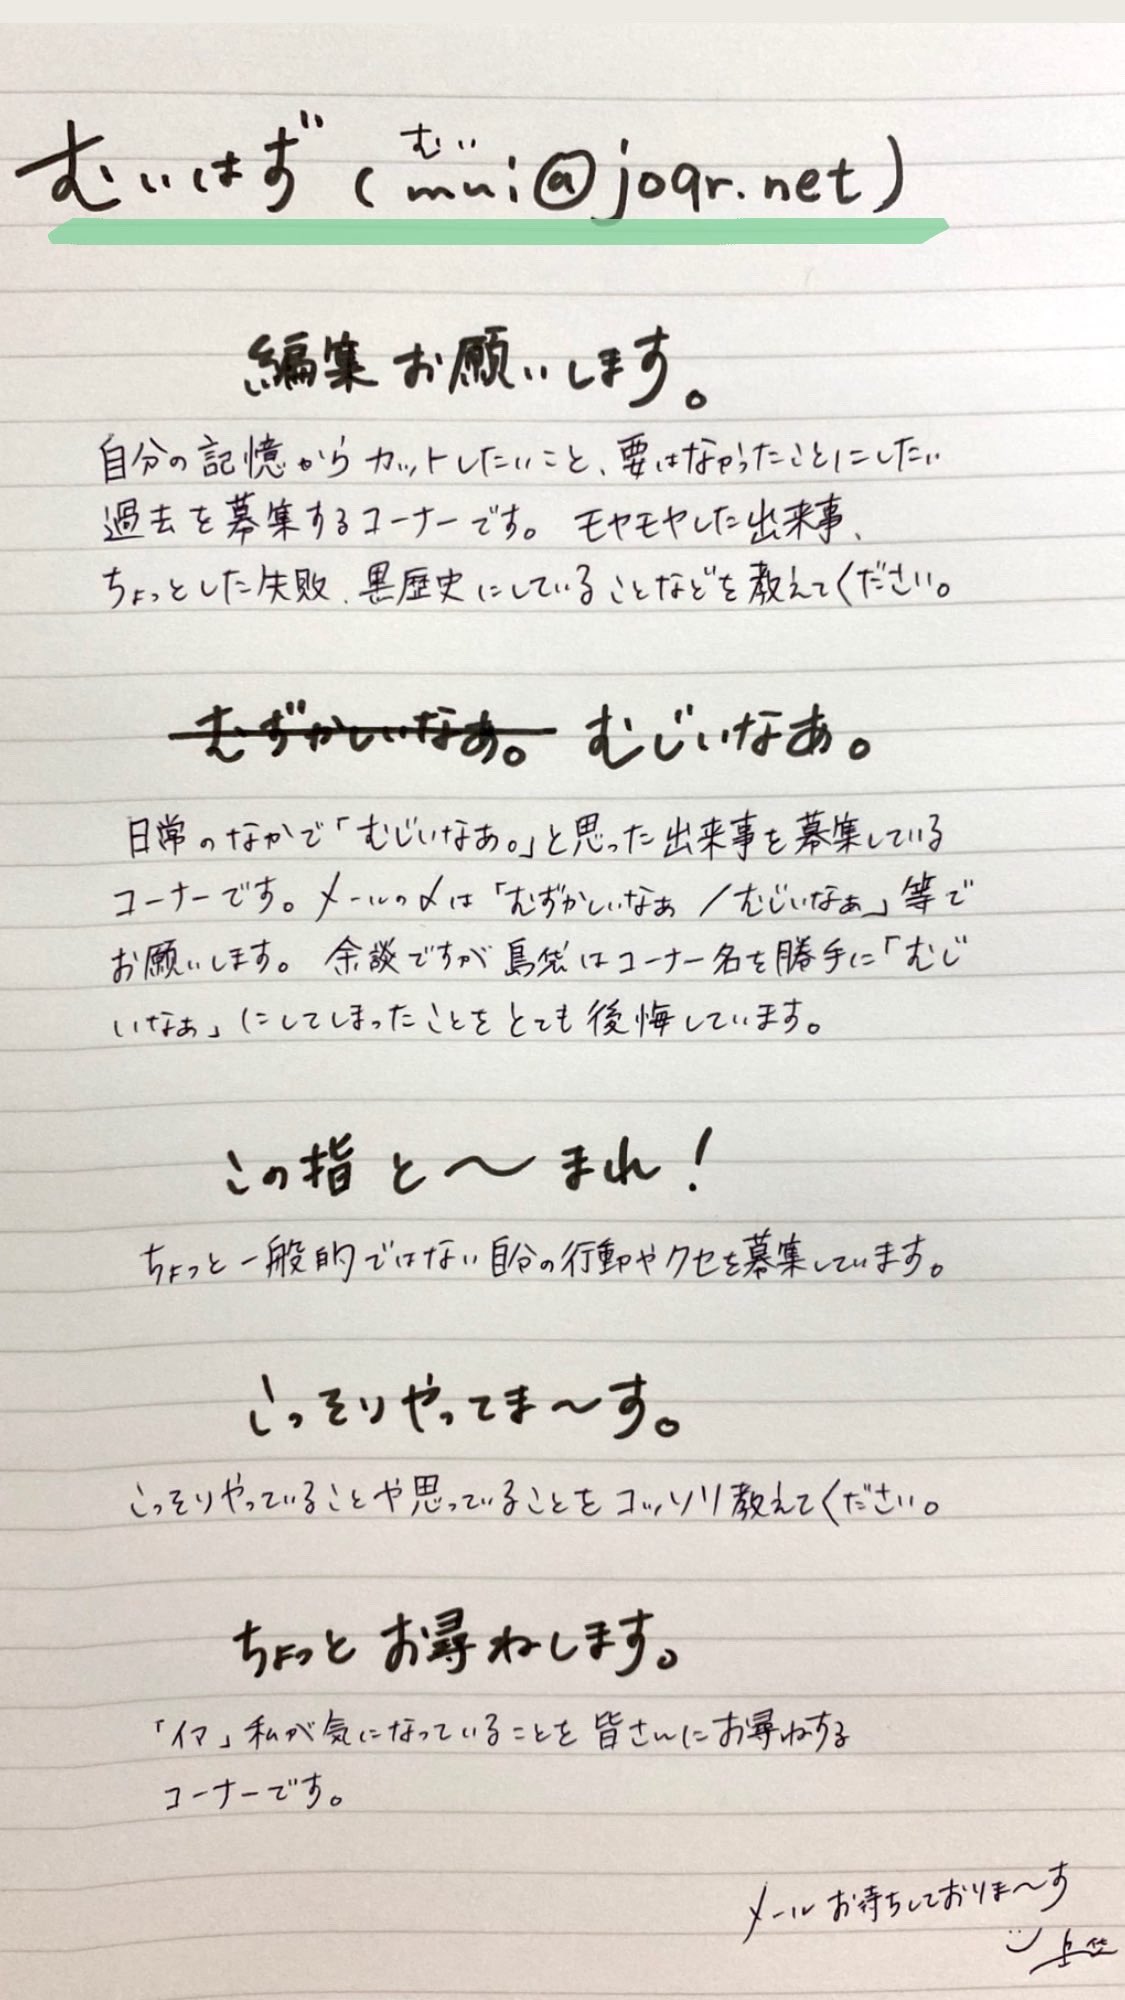 むいはず(mui@joqr.net)
むい
編集お願いします。
自分の記憶からカットしたいこと、要はなかったことにしたい
過去を募集するコーナーです。モヤモヤした出来事、
ちょっとした失敗、黒歴史にしていることなどを教えてください。
むずかしいなあ。 むじいなあ。
日常のなかで「むじいなあ。」と思った出来事を募集している
コーナーです。メールの〆は「むずかしいなぁ/むじいなぁ」等で
お願いします。余談ですが島袋はコーナー名を勝手に「むじ
いなぁ」にしてしまったことをとても後悔しています。
この指と〜まれ!
ちょっと一般的ではない自分の行動やクセを募集しています。
こっそりやってま〜す。
こっそりやっていることや思っていることをコッソリ教えてください。
ちょっとお尋ねします。
「イマ」私が気になっていることを皆さんにお尋ねする
コーナーです。
メールお待ちしておりま〜す